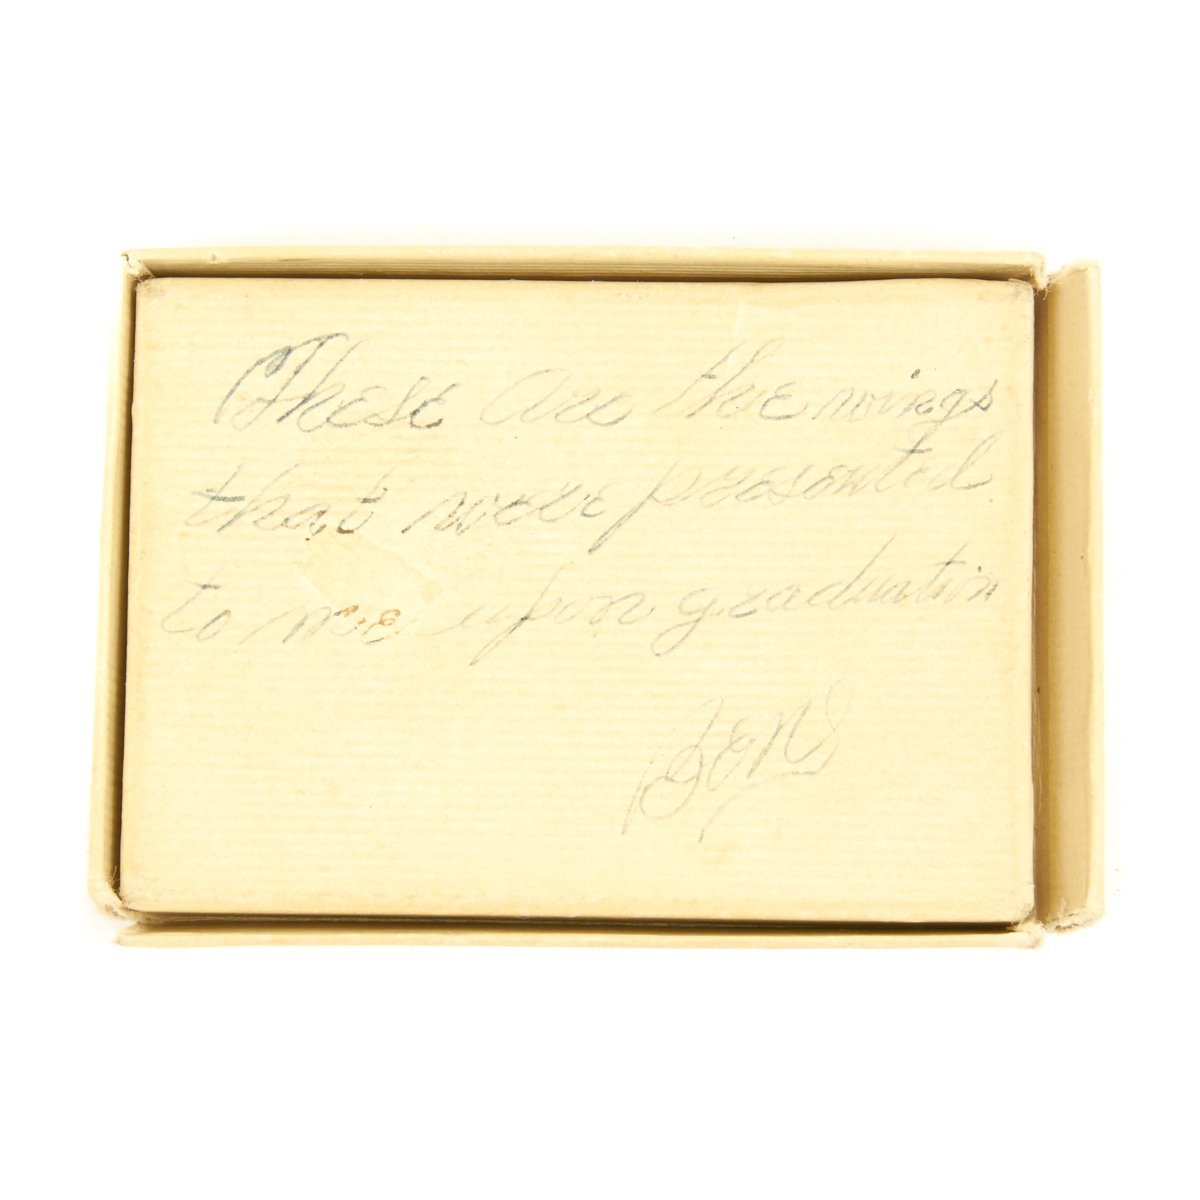 These are the wings
that were presented
to me upon graduation